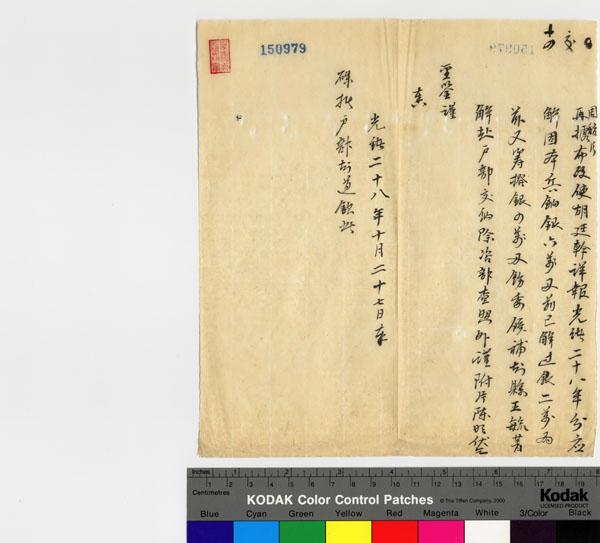 交
十四
周馥片
再據布政使胡廷幹詳報光緒二十八年分應
解固本兵餉銀六萬兩前已解過銀二萬兩
茲又籌撥銀四萬兩飭委候補知縣王毓菁
解赴戶部交納除咨部查照外謹附片陳明伏乞
聖鑒謹
奏
光緒二十八年十月二十七日奉
硃批戶部知道欽此
150979
150979
Inches 1 2 3 4 5 6 7 8
Centimetres 1 2 3 4 5 6 7 8 9 10 11 12 13 14 15 16 17 18 19
KODAK Color Control Patches
© The Tiffen Company, 2000
Kodak
LICENSED PRODUCT
Blue Cyan Green Yellow Red Magenta White 3/Color Black